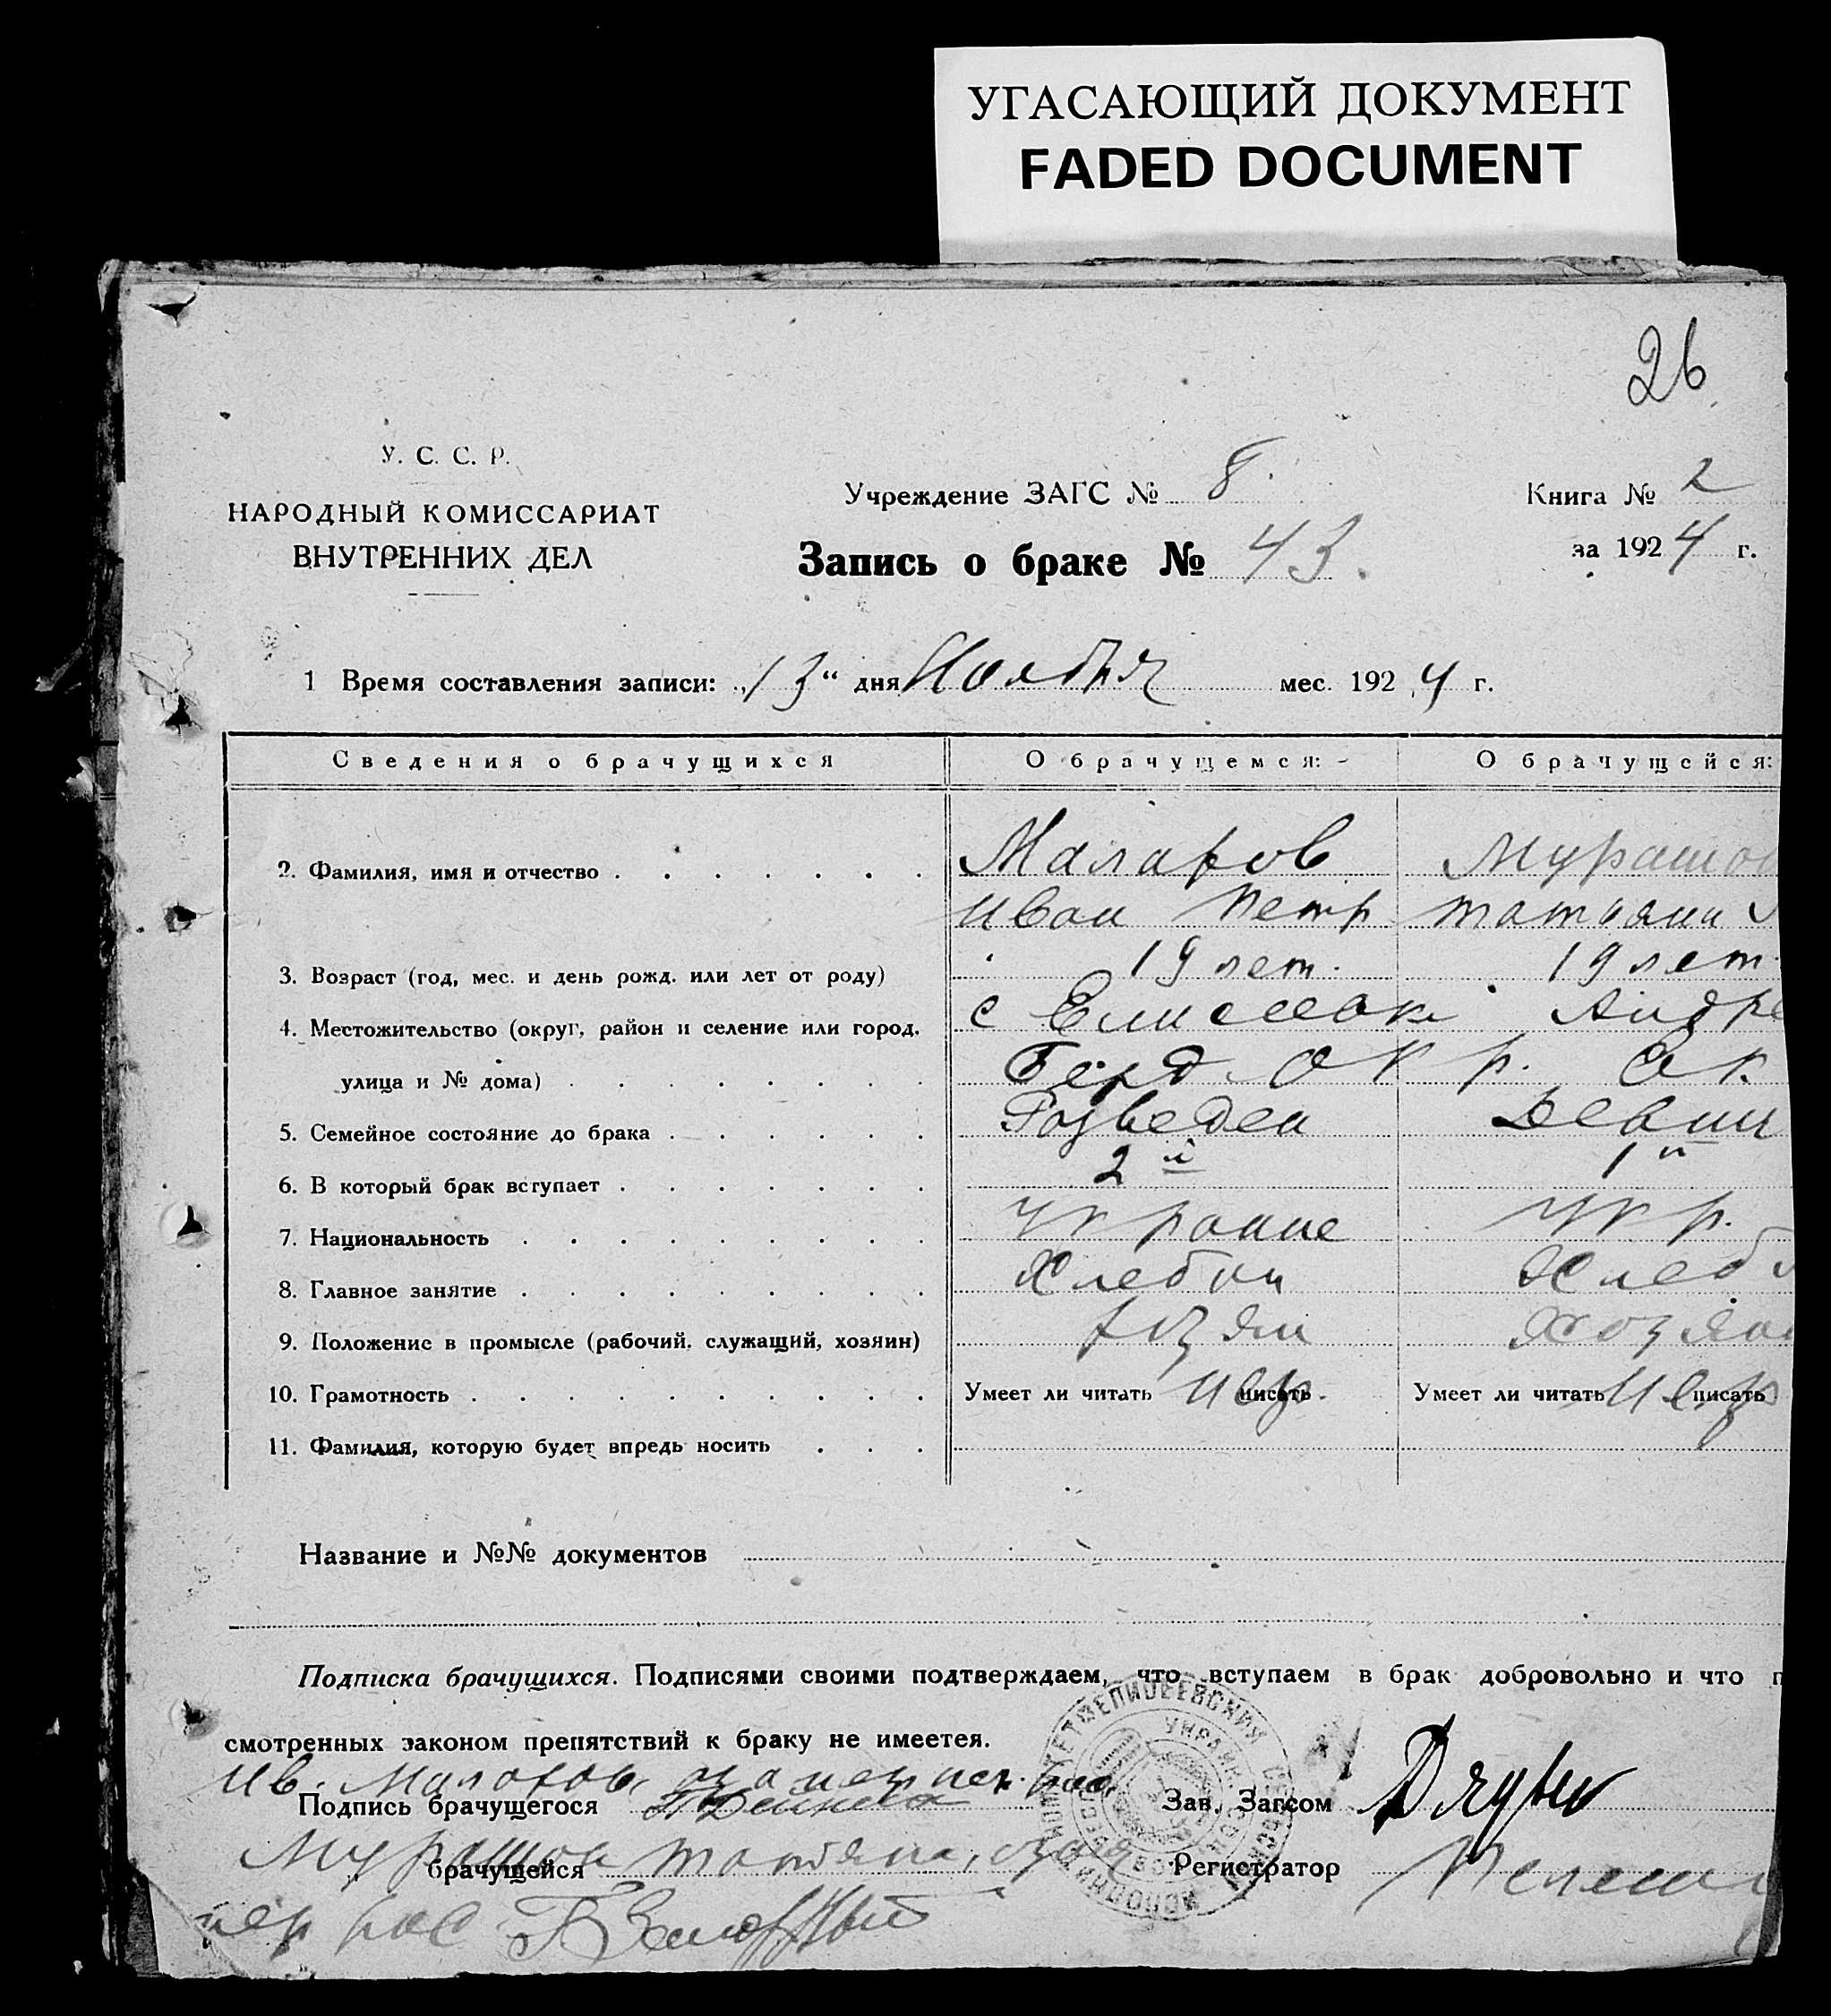 УГАСАЮЩИЙ ДОКУМЕНТ
FADED DOCUMENT
26
У. С. С. Р.
НАРОДНЫЙ КОМИССАРИАТ
ВНУТРЕННИХ ДЕЛ
Учреждение ЗАГС № 8.
Книга № 2
Запись о браке № 43.
за 1924 г.
1 Время составления записи: „13" дня Ноября мес. 1924 г.
Сведения о брачущихся О брачущемся: О брачущейся:
2. Фамилия, имя и отчество Маларов Мурашов
Иван Петр Татьяна
3. Возраст (год, мес. и день рожд. или лет от роду) 19 лет. 19 лет.
4. Местожительство (округ, район и селение или город, с Елисеевка Андре
улица и № дома) Берд Окр. Ок.
5. Семейное состояние до брака Разведен Девиц
6. В который брак вступает 2й 1й
7. Национальность Украине Укр.
8. Главное занятие Хлебоп Хлеб
9. Положение в промысле (рабочий, служащий, хозяин) хозяи хозяи
10. Грамотность Умеет ли читать негр. писать Умеет ли читать негр писать
11. Фамилия, которую будет впредь носить
Название и №№ документов
Подписка брачущихся. Подписями своими подтверждаем, что вступаем в брак добровольно и что п
смотренных законом препятствий к браку не имеетея.
Ив. Маларов, за негр рас.
Подпись брачущегося Зав. Загсом
Мурашов Татьяна, за
брачущейся Регистратор
негр рас